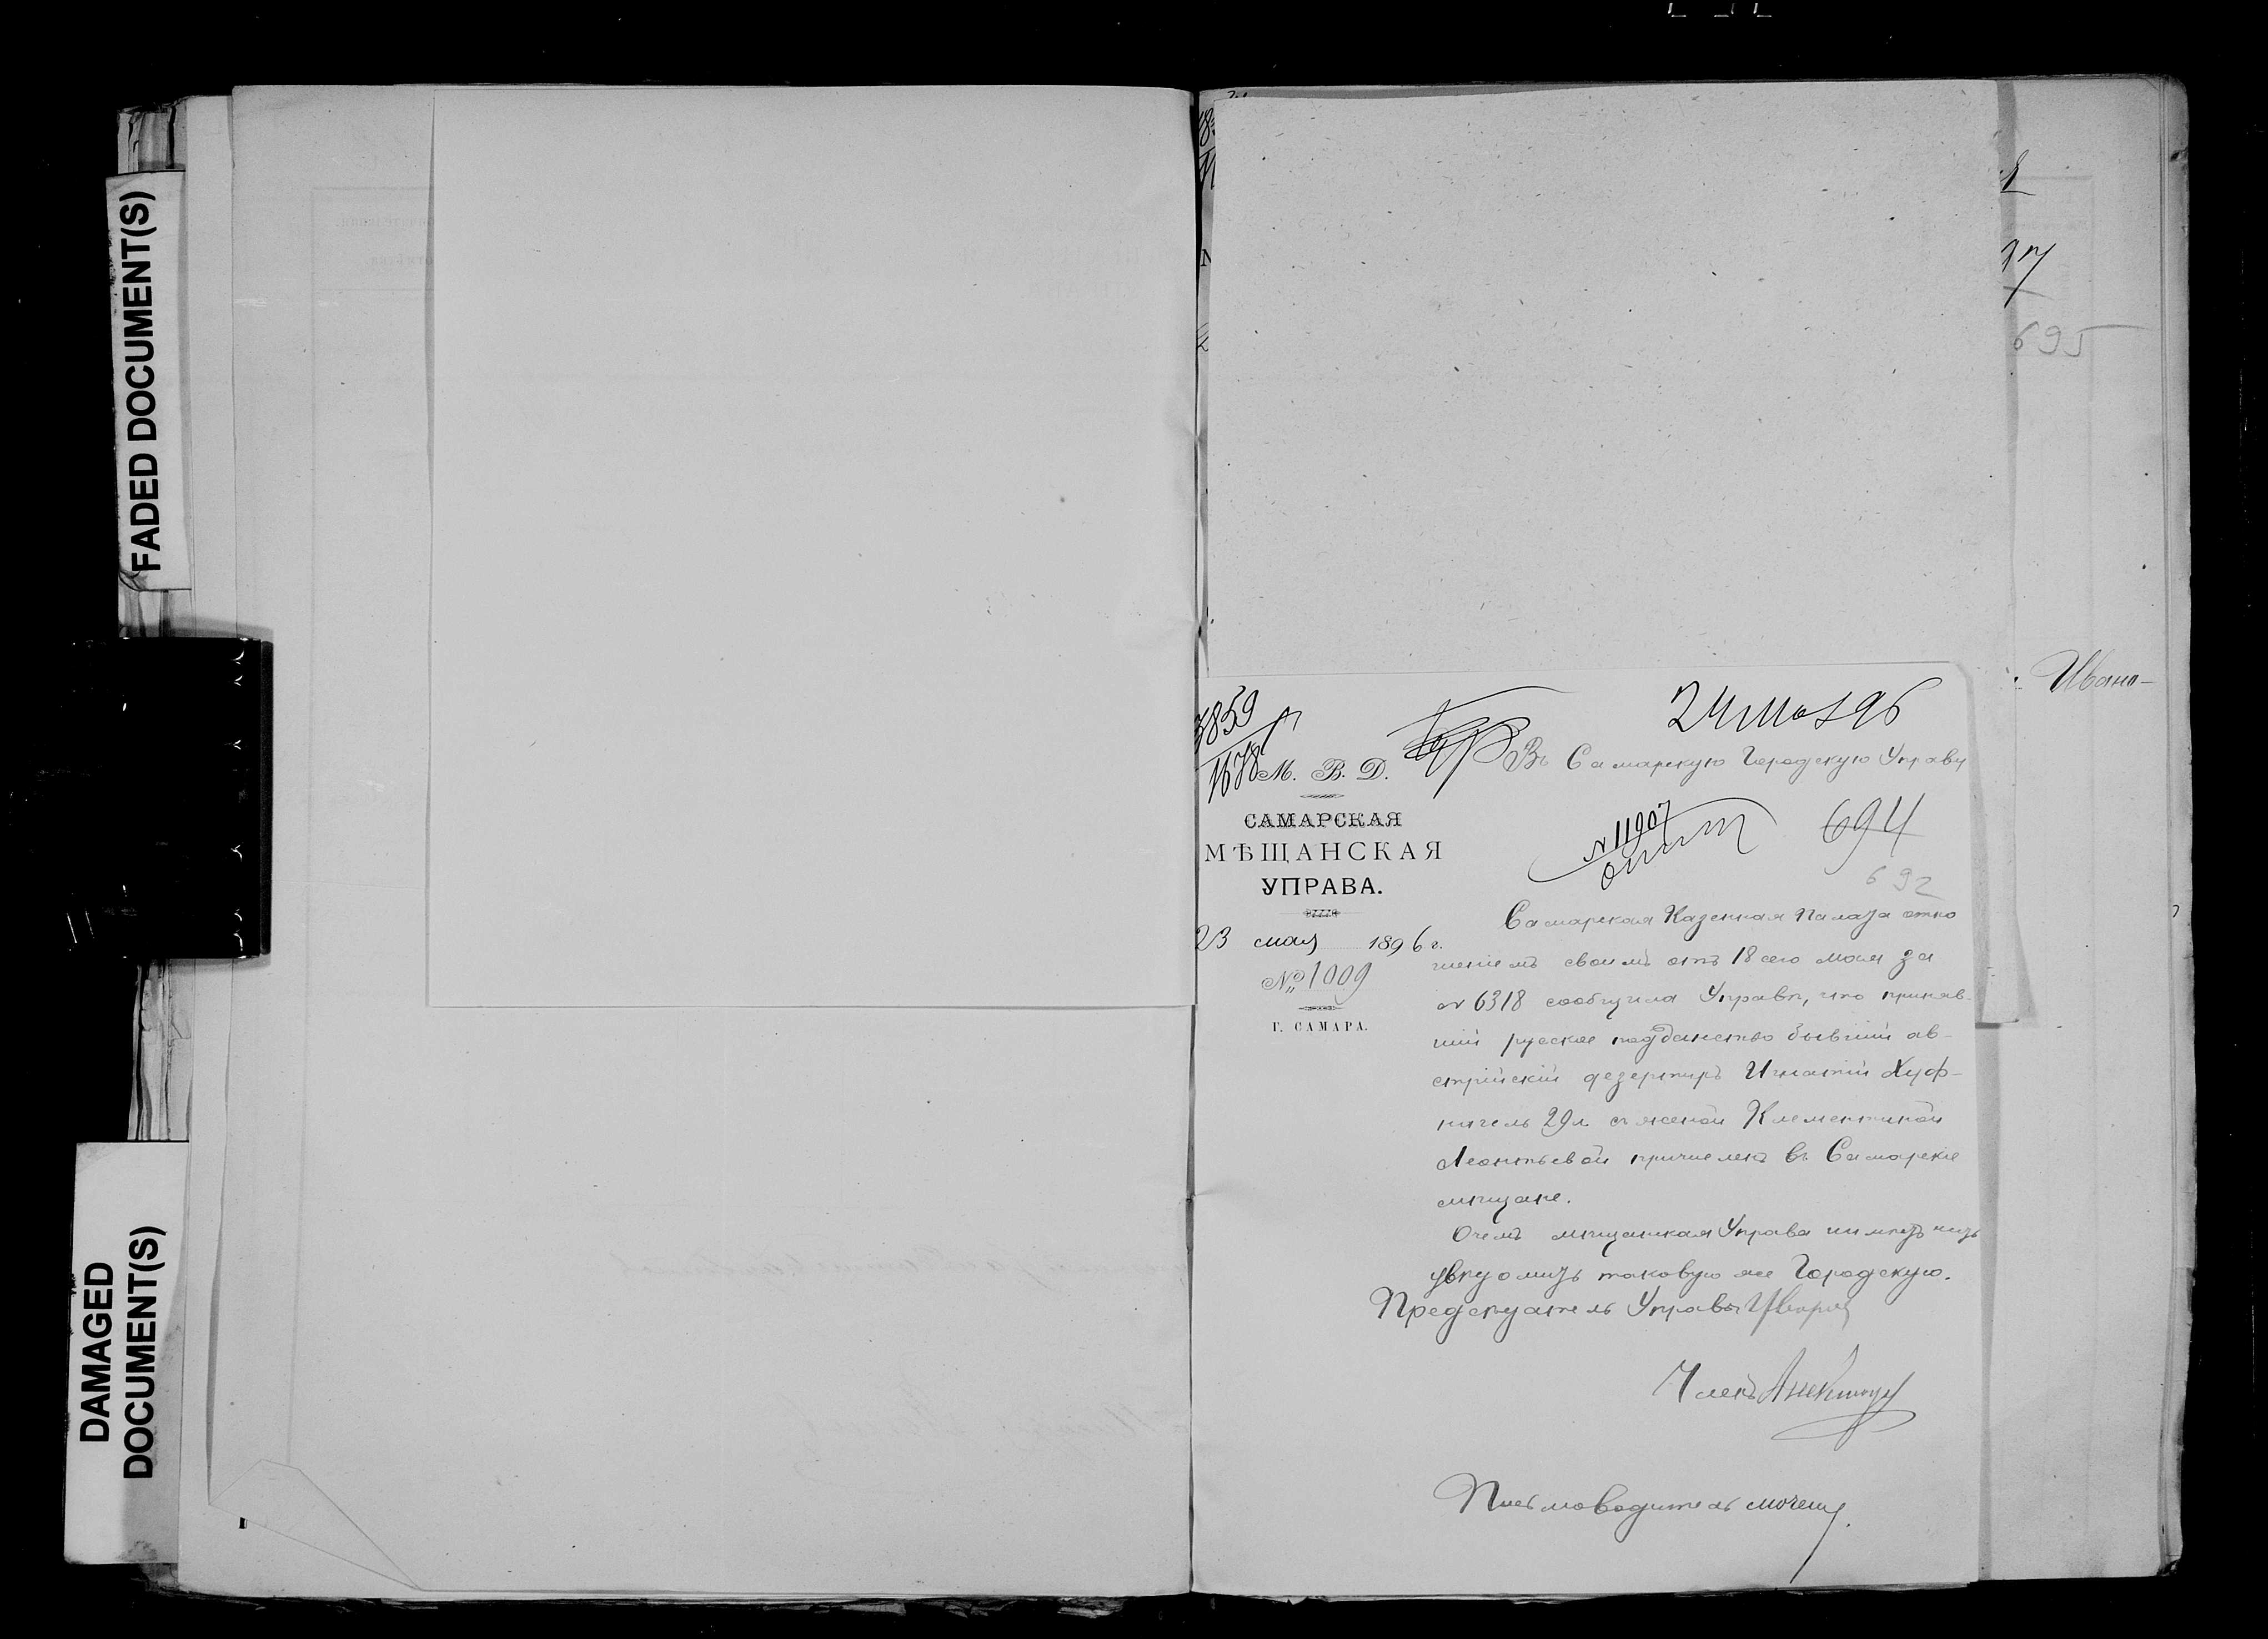 FADED DOCUMENT(S)
DAMAGED
DOCUMENT(S)
3859
1678
24 мая 96
М. В. Д.
Въ Самарскую Городскую Управу
САМАРСКАЯ
МѢЩАНСКАЯ
УПРАВА.
23 мая 1896 г.
№ 1009
Г. САМАРА.
№ 11907
694
692
Самарская Казенная Палата отно
шеніемъ своимъ отъ 18 сего мая за
№ 6318 сообщила Управѣ, что приняв-
шій русское подданство бывшій ав-
стрійскій дезертиръ Игнатій Хуф-
нигель 29 л. съ женой Клементиной
Леонтьевой причисленъ въ Самарскіе
мѣщане.
О чемъ мѣщанская Управа имѣетъ честь
увѣдомить таковую же Городскую.
Предсѣдатель Управы
Членъ
Письмоводитель
695
Ивано-